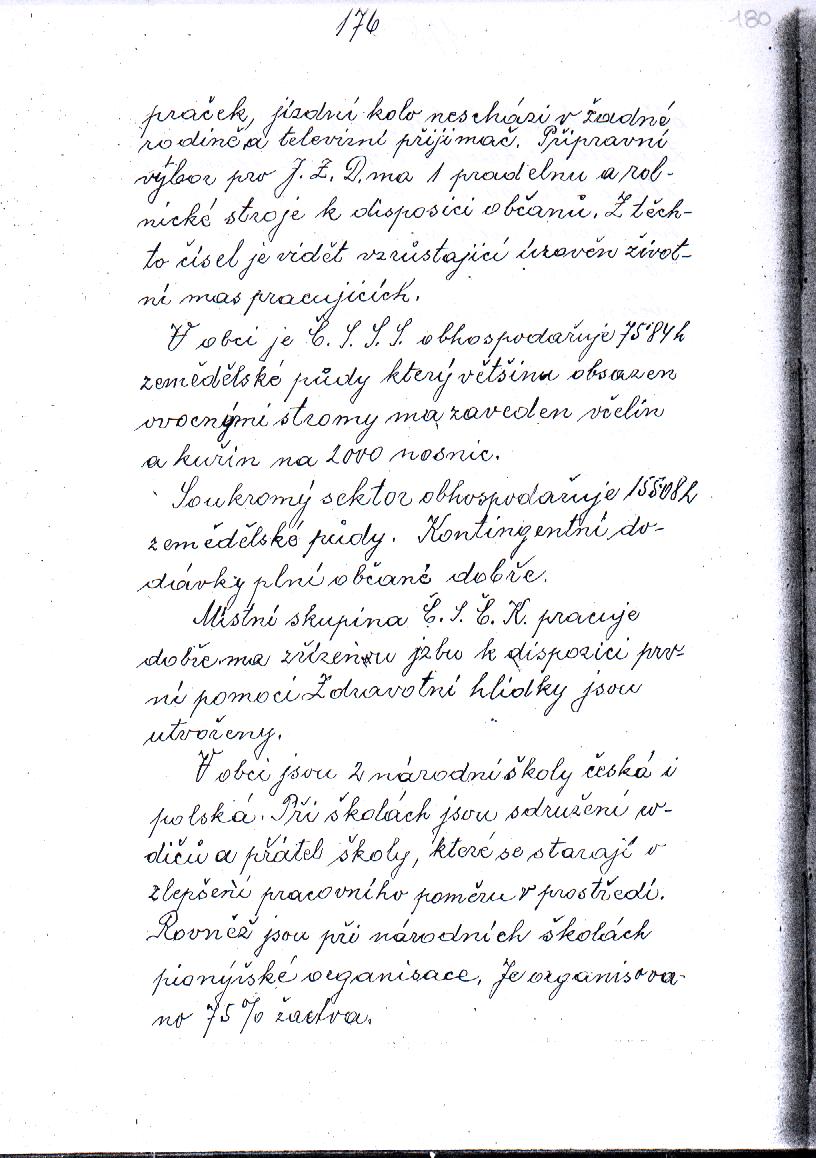 176
180
praček, jízdní kolo neschází v žádné
rodině a televizní přijimač. Přípravní
výbor pro J. Z. D. ma 1 pradelnu a rol-
nické stroje k disposici občanů. Z těch-
to čísel je vidět vzrůstající úroveň život-
ní mas pracujících.
V obci je Č. S. S. S. obhospodařuje 75·84 h
zemědělské půdy který většinu obsazen
ovocnými stromy ma zaveden včelín
a kuřín na 2000 nosnic.
Soukromý sektor obhospodařuje 155·08 h
zemědělské půdy. Kontingentní do-
dávky plní občané dobře.
Místní skupina Č. S. Č. K. pracuje
dobře ma zřízenou jzbu k dispozici prv-
ní pomoci Zdravotní hlídky jsou
utvořeny.
V obci jsou 2 národní školy česká i
polská. Při školách jsou sdružení ro-
dičů a přátel školy, které se starají o
zlepšení pracovního poměru v prostředí.
Rovněž jsou při národních školách
pionýrské organisace. Je organisova-
no 75% žactva.